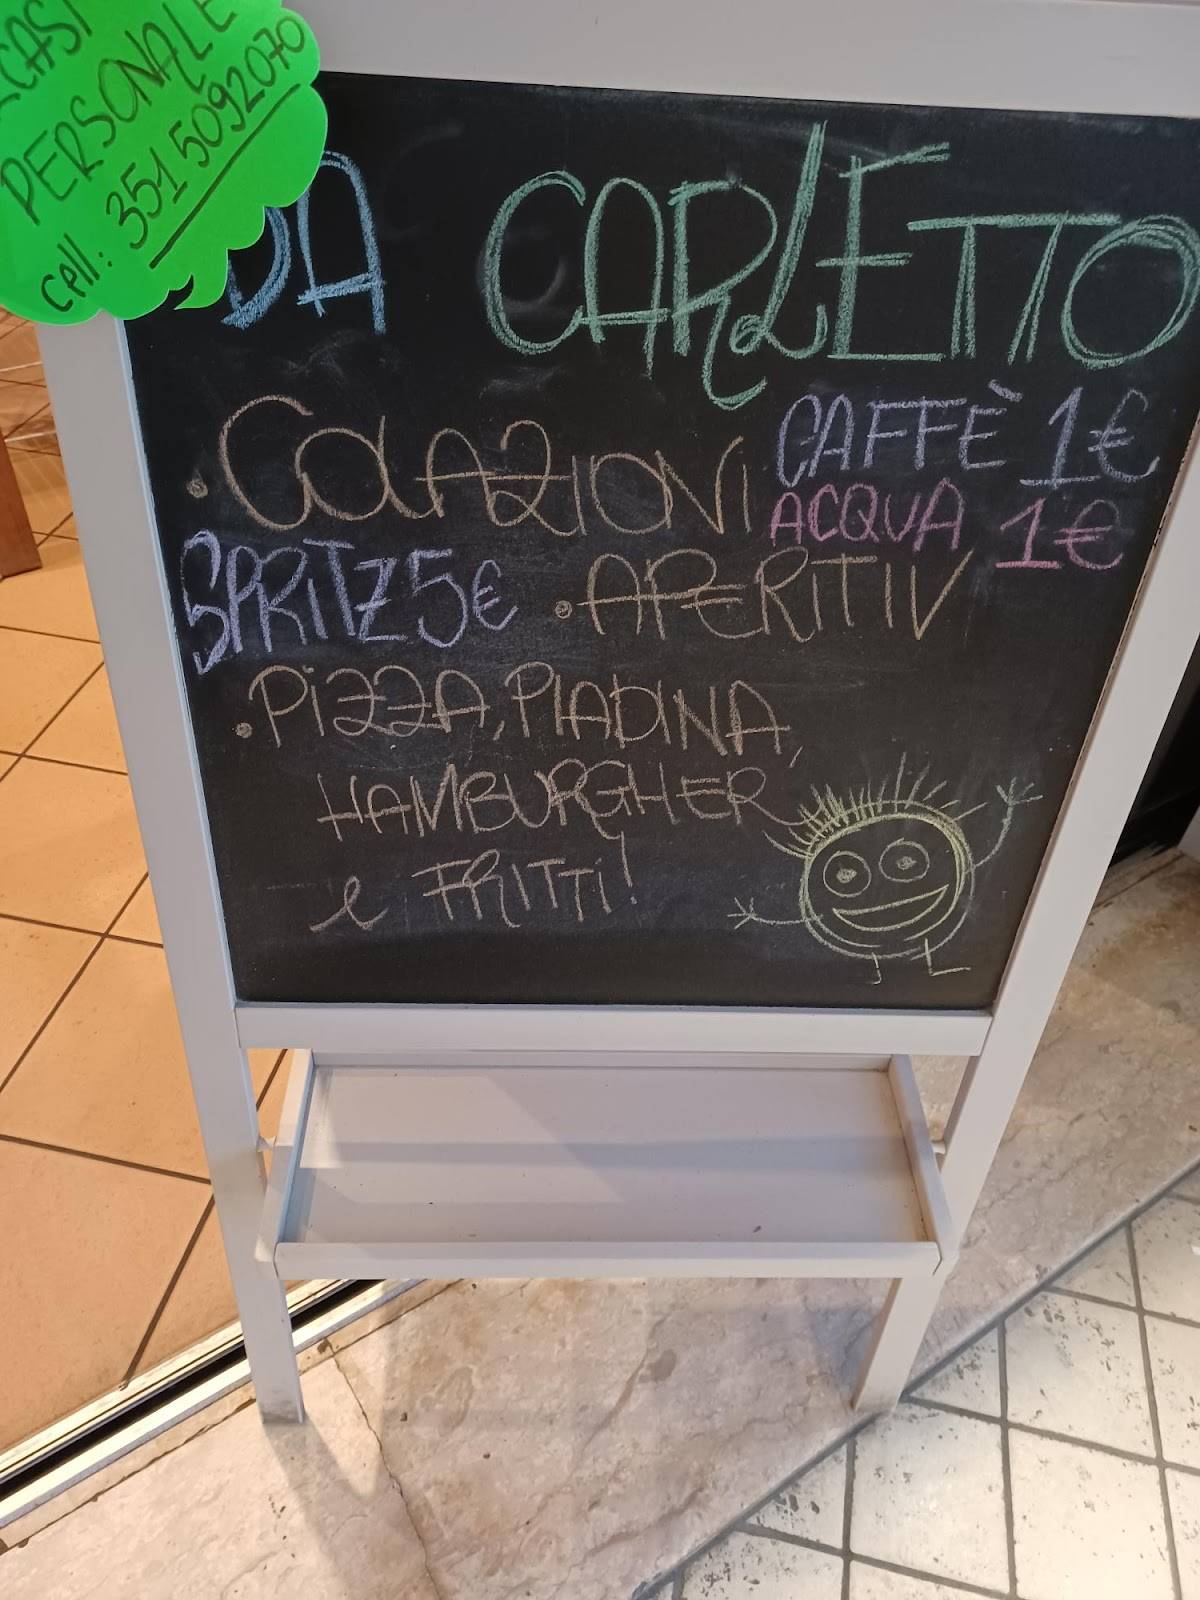 PERSONALE
cell.: 351 5092070
DA CARLETTO
• COLAZIONI
CAFFÈ 1€
ACQUA 1€
SPRITZ 5€
• APERITIV
• PIZZA, PIADINA,
HAMBURGHER
e FRITTI!